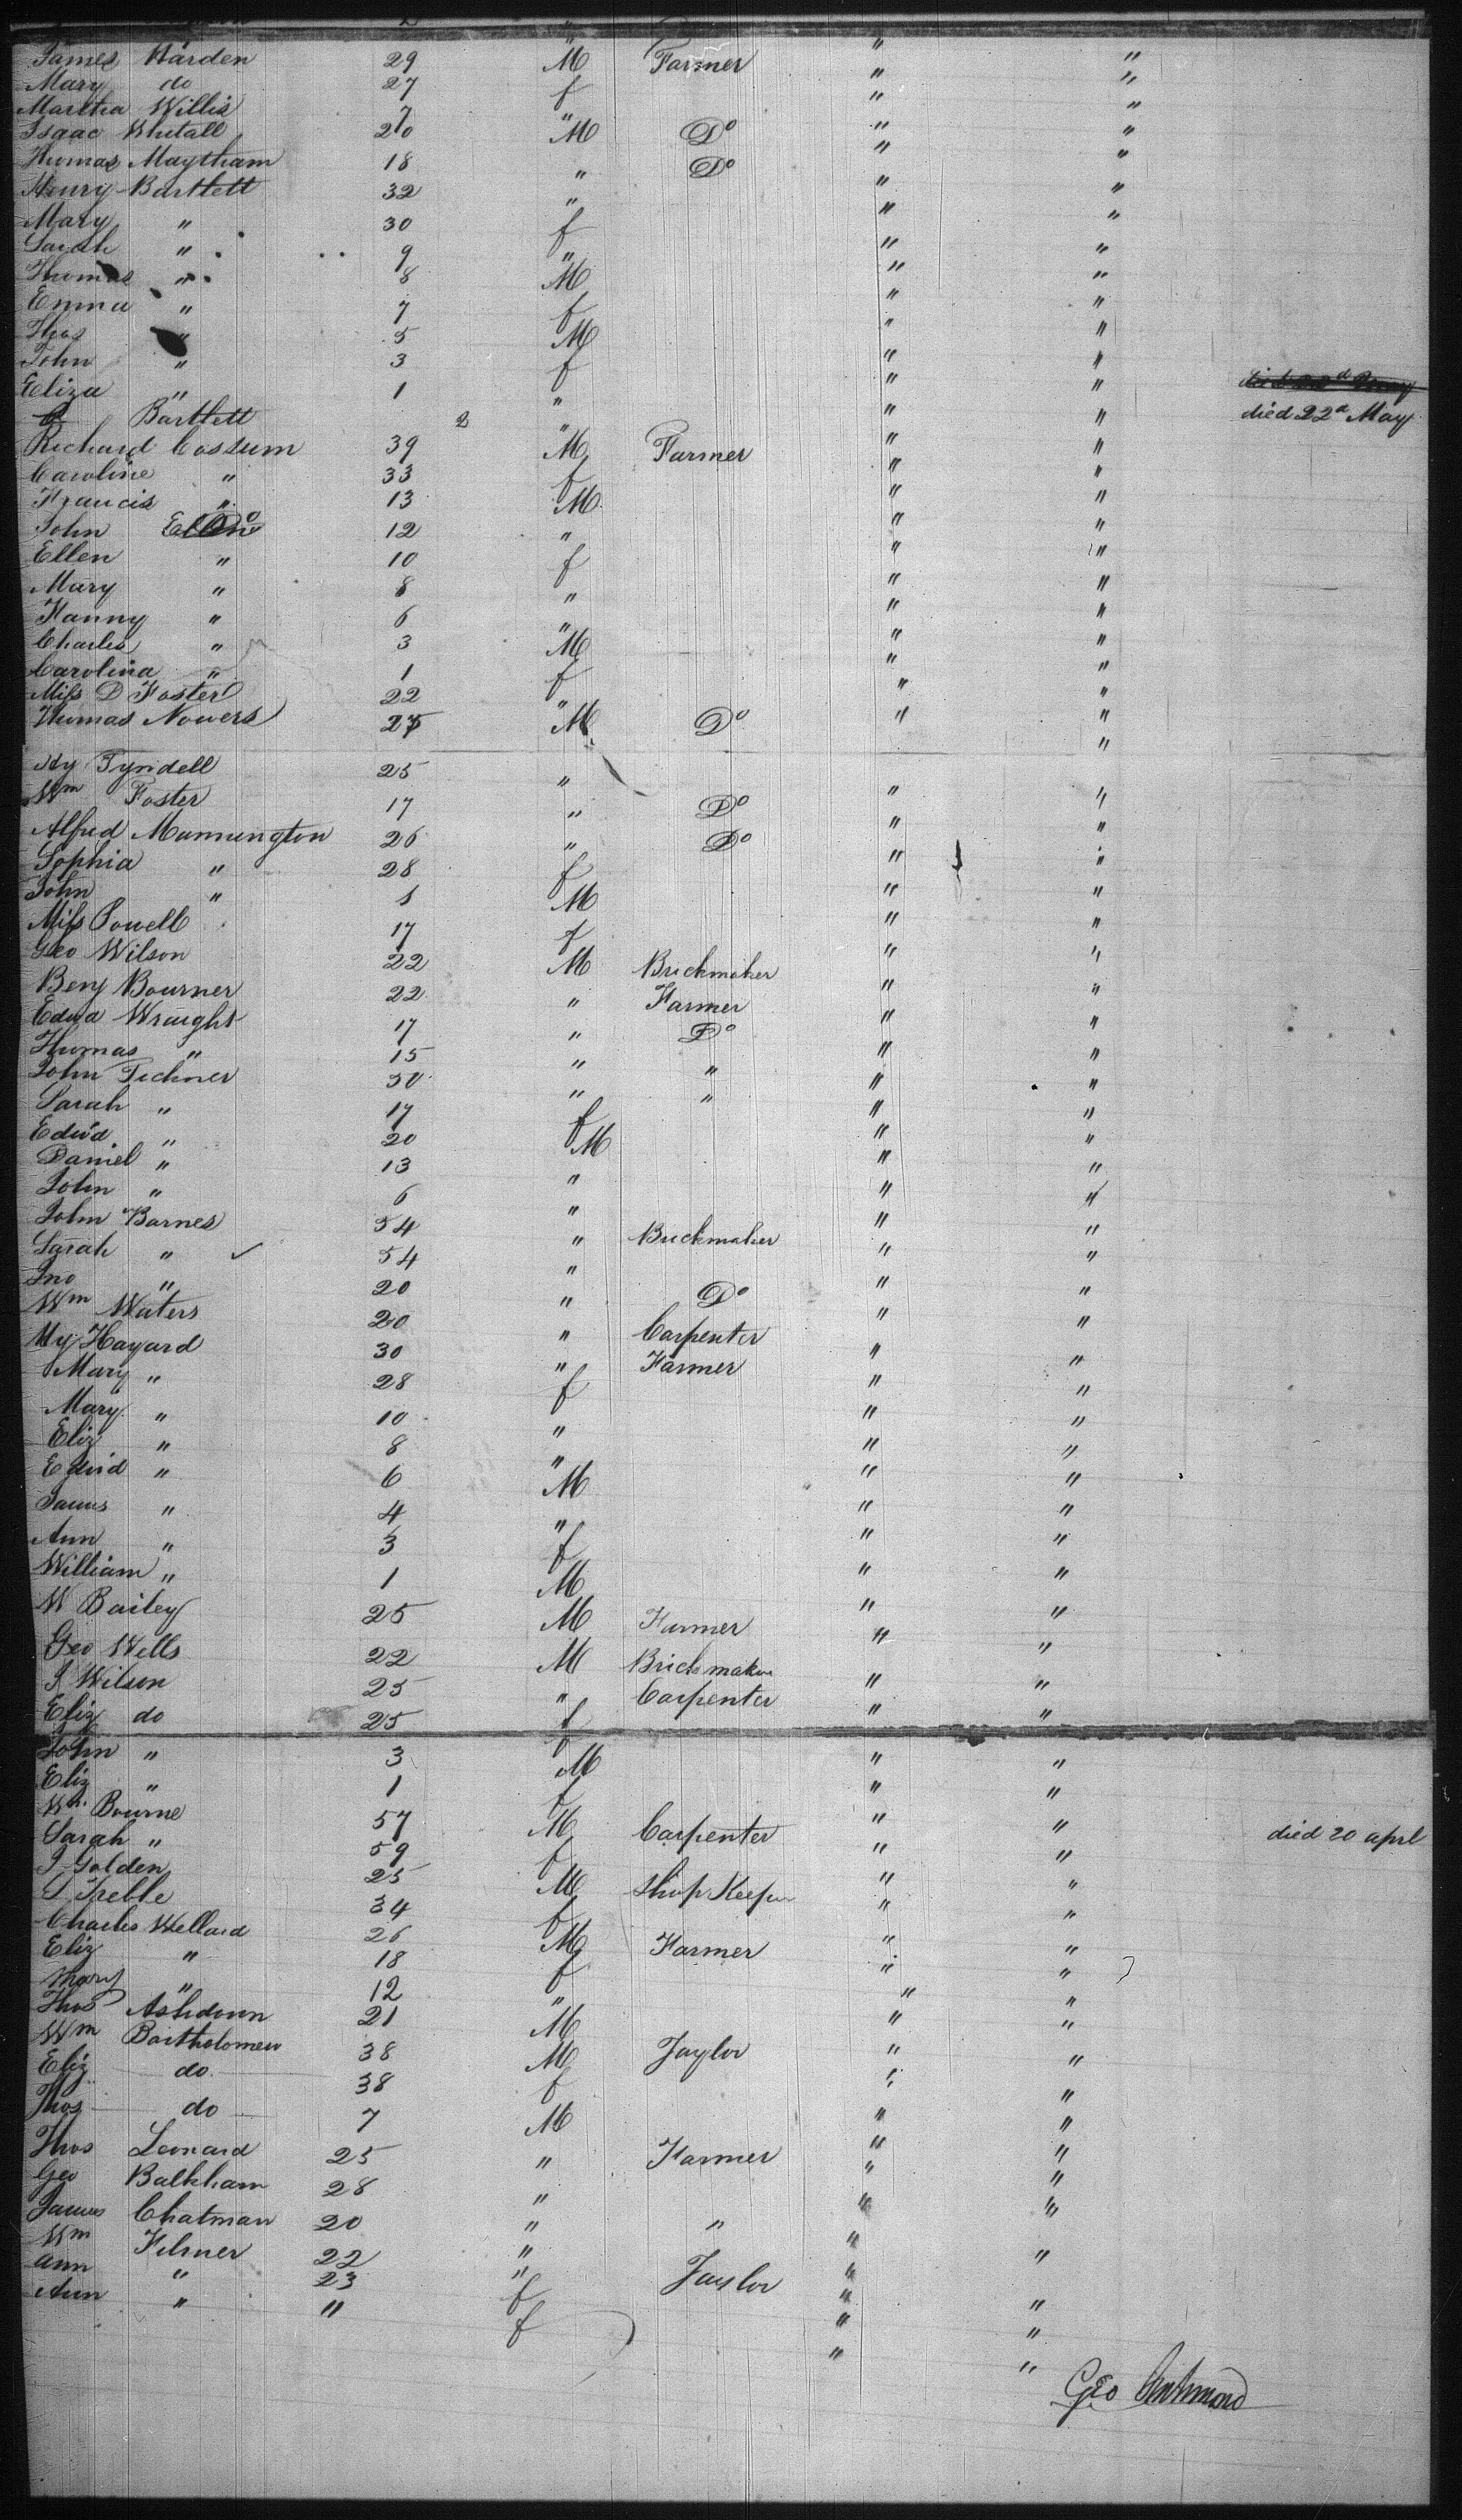 James Harden 29 M Farmer " "
Mary do 27 f " "
Martha Willis 7 " " "
Isaac Whitall 20 M Do " "
Thomas Maytham 18 " Do " "
Henry Bartlett 32 " " "
Mary " 30 f " "
Sarah " 9 " " "
Thomas " 8 M " "
Emma " 7 f " "
Thos " 5 M " "
John " 3 f " "
Eliza " 1 " " "
Bartlett 2 " " " died 22d May
Richard Cossum 39 M Farmer " "
Caroline " 33 f " "
Francis " 13 M " "
John Do 12 " " "
Ellen " 10 f " "
Mary " 8 " " "
Fanny " 6 " " "
Charles " 3 M " "
Carolina " 1 f " "
Miss D Foster 22 " " "
Thomas Nowers 25 M Do " "
Hy Tyndell 25 " " "
Wm Foster 17 " Do " "
Alfred Mannington 26 " Do " "
Sophia " 28 f " "
John " 1 M " "
Miss Powell 17 f " "
Geo Wilson 22 M Brickmaker " "
Benj Bourner 22 " Farmer " "
Edwd Wraight 17 " Do " "
Thomas " 15 " " " "
John Tichner 50 " " " "
Sarah " 17 f " "
Edwd " 20 M " "
Daniel " 13 " " "
John " 6 " " "
John Barnes 54 " Brickmaker " "
Sarah " 54 " " "
Jno " 20 " Do " "
Wm Waters 20 " Carpenter " "
Hy Hayard 30 " Farmer " "
Mary " 28 f " "
Mary " 10 " " "
Eliz " 8 " " "
Edwd " 6 M " "
James " 4 " " "
Ann " 3 f " "
William " 1 M " "
W Bailey 25 M Farmer " "
Geo Wells 22 M Brickmaker " "
J Wilson 25 " Carpenter " "
Eliz do 25 f " "
John " 3 M " "
Eliz " 1 f " "
Wm Bourne 57 M Carpenter " " died 20 aprl
Sarah " 59 f " "
J Golden 25 M Shop Keeper " "
S Treble 34 f " "
Charles Wellard 26 M Farmer " "
Eliz " 18 f " "
Mary " 12 " " "
Thos Ashdown 21 M " "
Wm Bartholomew 38 M Taylor " "
Eliz do 38 f " "
Thos do 7 M " "
Thos Leonard 25 " Farmer " "
Geo Balkham 28 " " "
James Chatman 20 " " " "
Wm Filmer 22 " " "
Ann " 23 f Taylor " "
Ann " 11 f " "
Geo